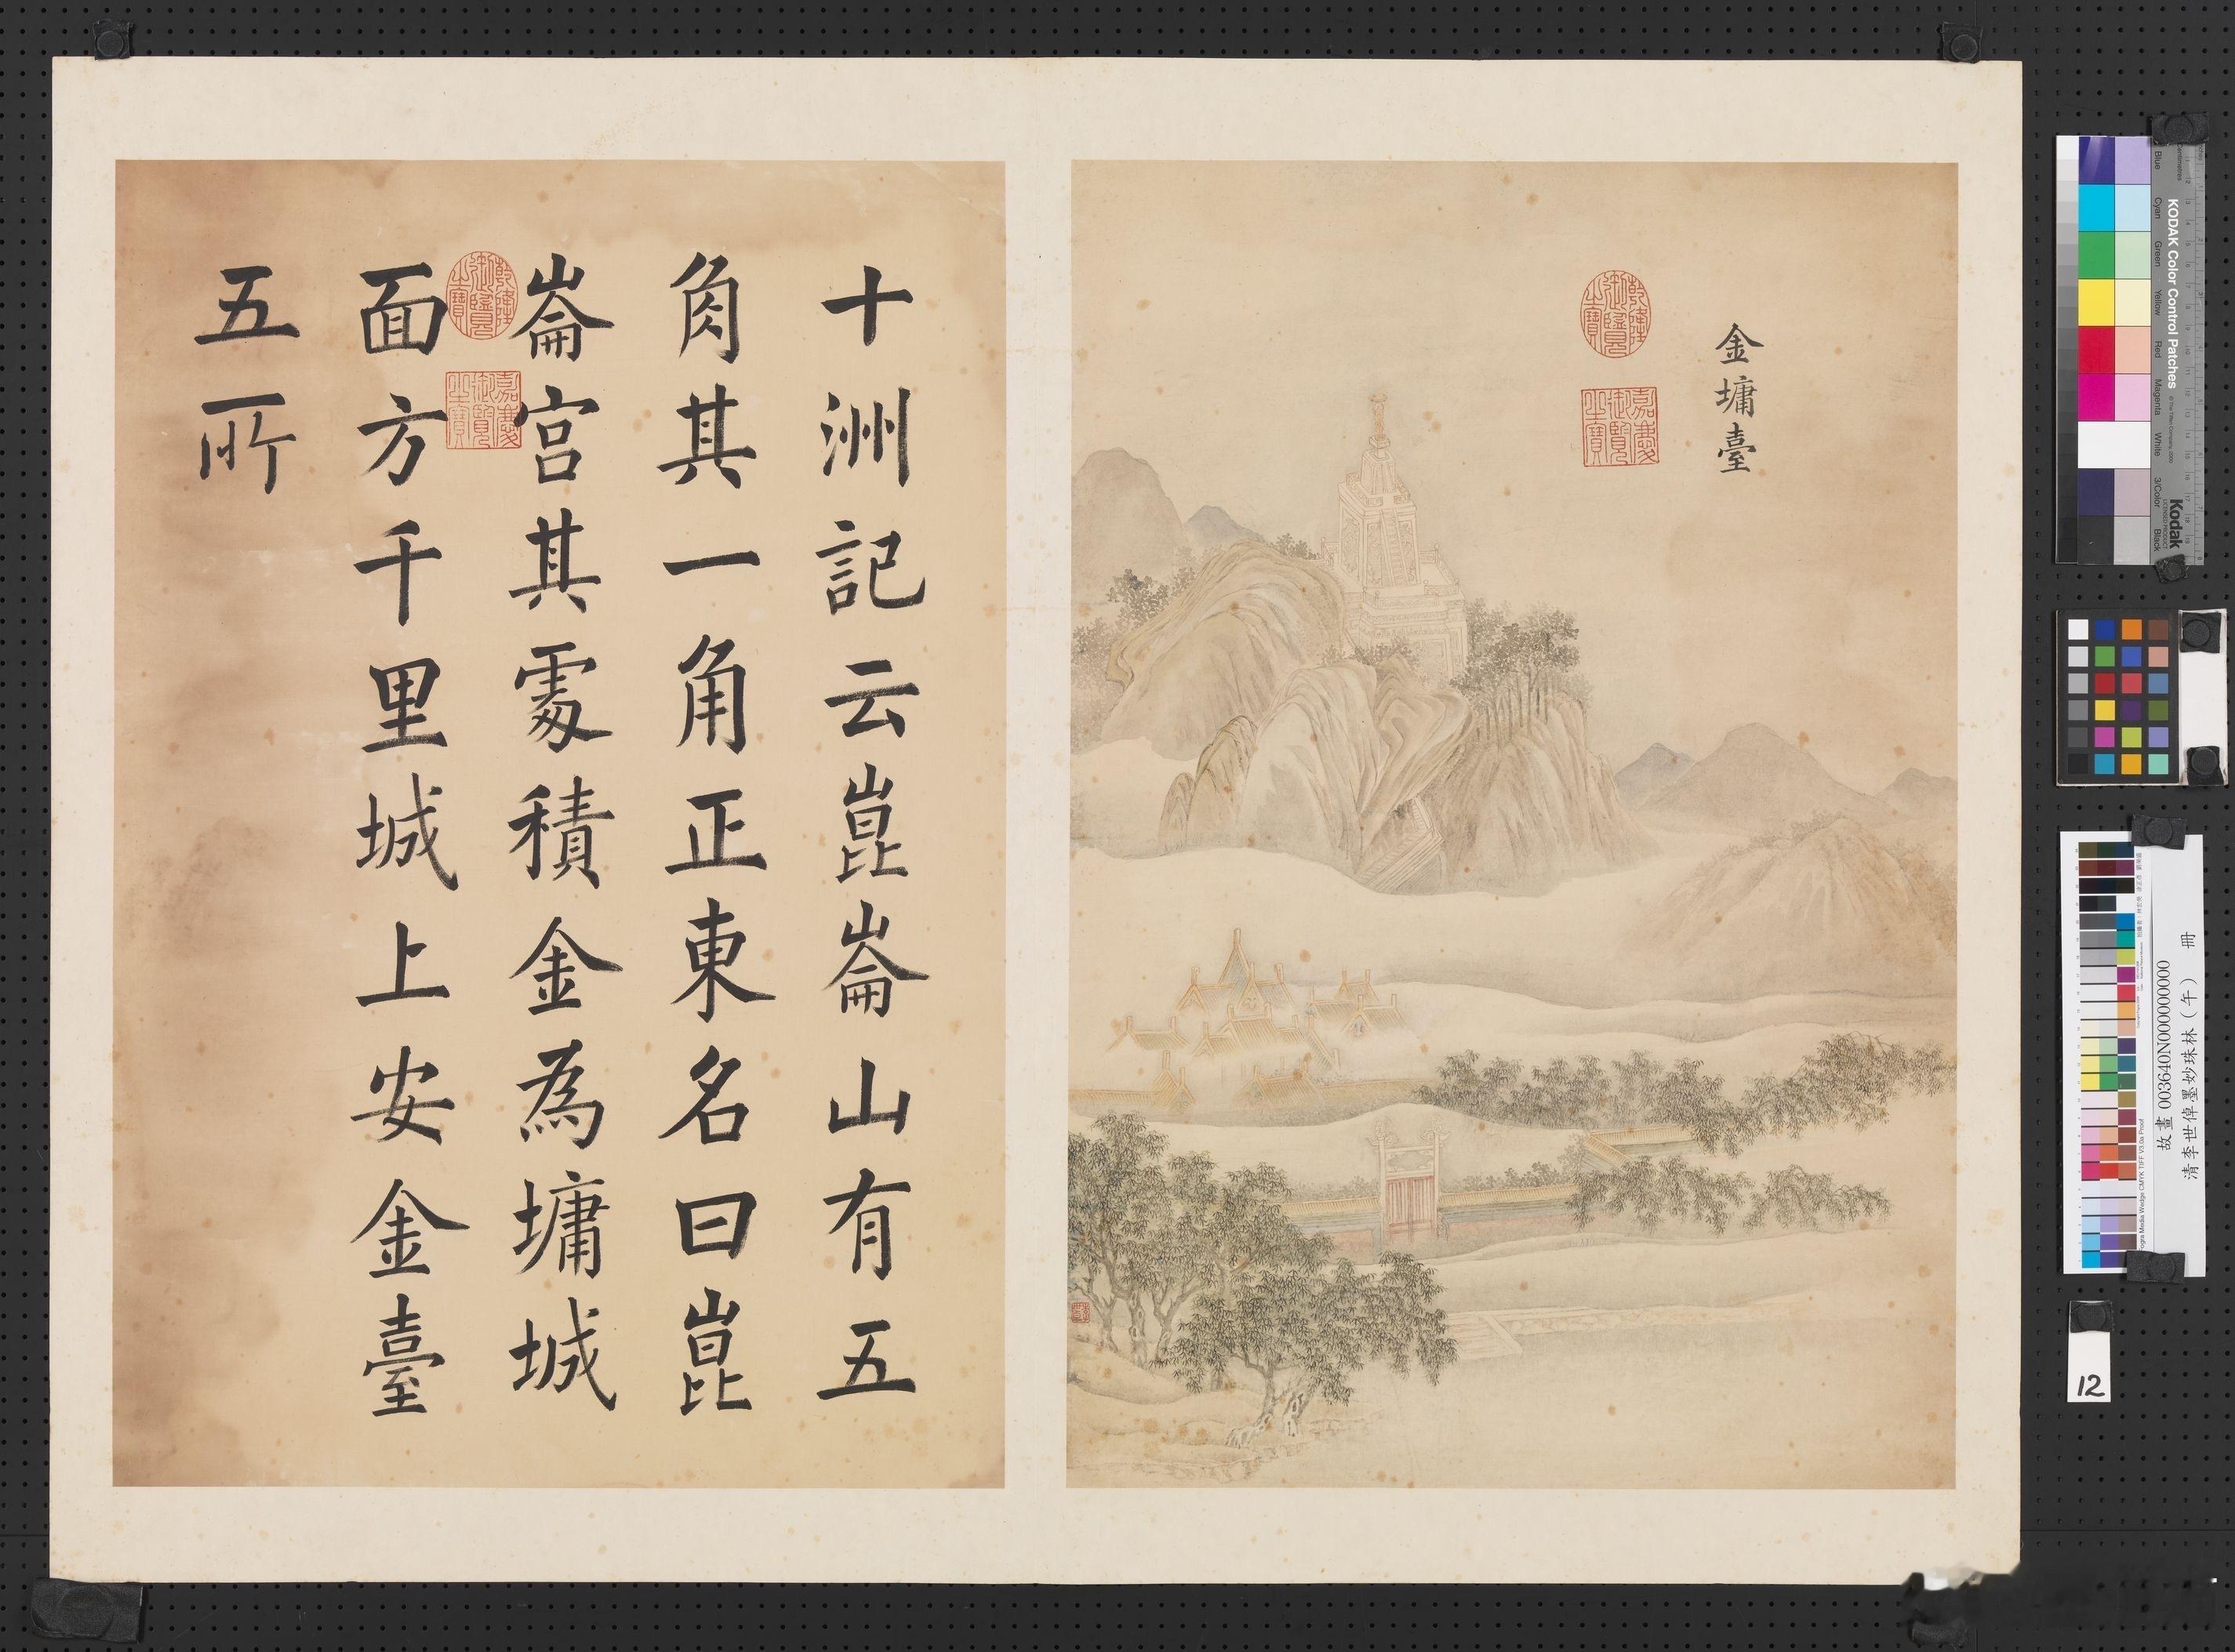 金墉臺
乾隆御覽之寶
嘉慶御覽之寶
十洲記云崑崙山有五
角其一角正東名曰崑
崙宮其處積金為墉城
面方千里城上安金臺
五所
乾隆御覽之寶
嘉慶御覽之寶
KODAK Color Control Patches
Kodak
LICENSED PRODUCT
Blue
Cyan
Green
Yellow
Red
Magenta
White
3/Color
Black
故畫 003640N000000000
清李世倬墨妙珠林（午） 冊
12